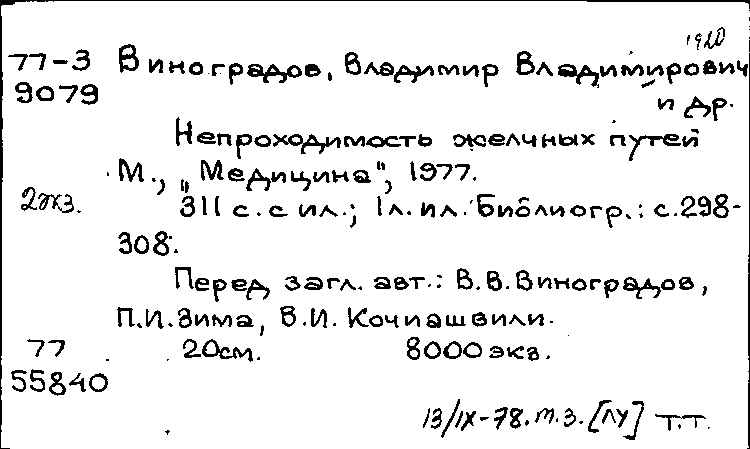 1920
77-3 Виноградов, Владимир Владимирович
9079 и др.
Непроходимость желчных путей
М., „Медицина", 1977.
2экз. 311 с. с ил.; 1л. ил. Библиогр.: с.298-
308.
Перед загл. авт.: В.В.Виноградов,
П.И.Зима, В.И.Кочиашвили.
77 20см. 8000 экз.
55840
13/IX-78. т.з. [ЛУ] Т.Т.